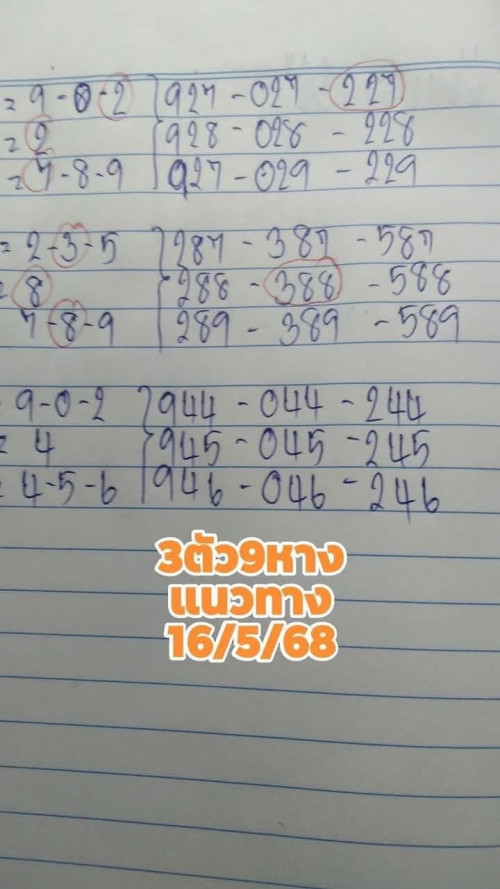 = 9-0-2 } 927 - 027 - 227
= 2 { 928 - 028 - 228
= 7-8-9 | 927 - 029 - 229
= 2-3-5 } 287 - 387 - 587
= 8 { 288 - 388 - 588
7-8-9 | 289 - 389 - 589
9-0-2 } 944 - 044 - 244
= 4 { 945 - 045 - 245
= 4-5-6 | 946 - 046 - 246
3ตัว9หาง
แนวทาง
16/5/68